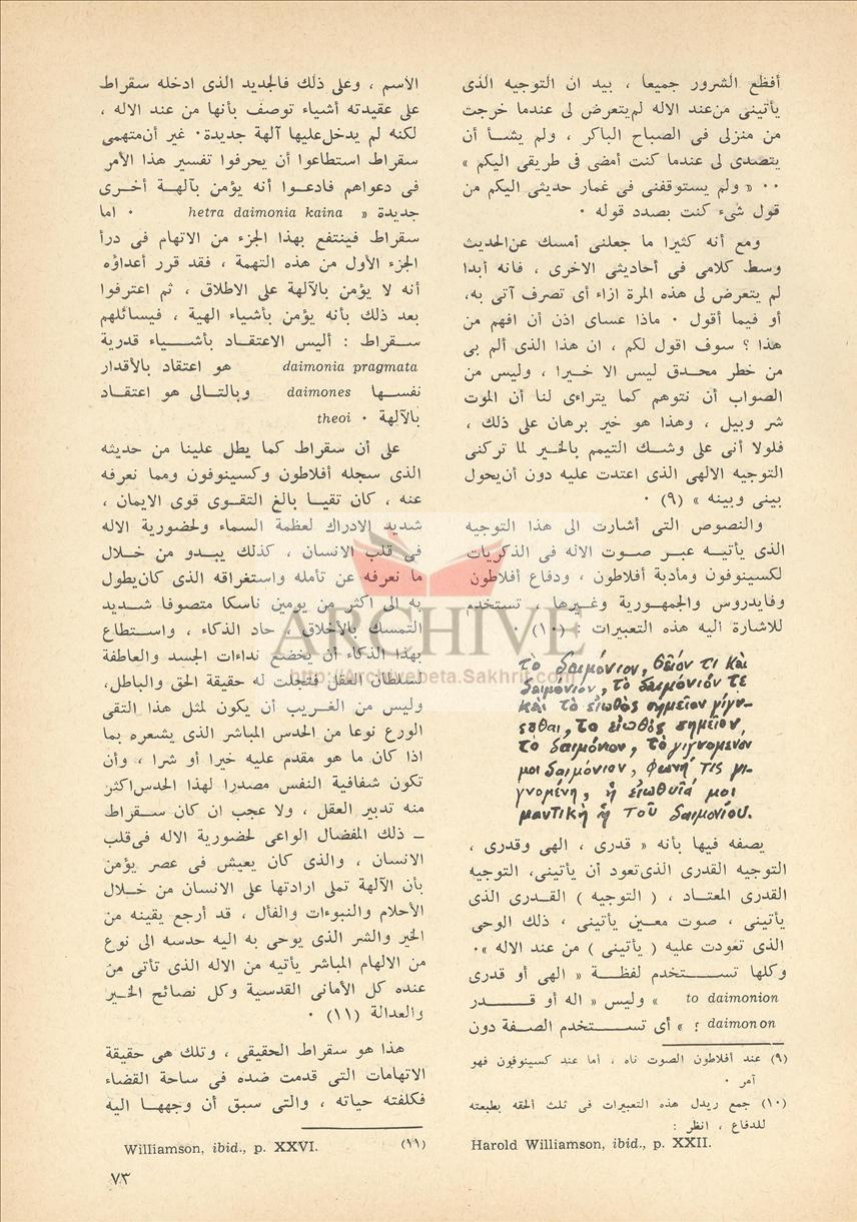 أفظع الشرور جميعا ، بيد ان التوجيه الذى
يأتينى من عند الاله لم يتعرض لى عندما خرجت
من منزلى فى الصباح الباكر ، ولم يشأ أن
يتصدى لى عندما كنت أمضى فى طريقى اليكم »
٠٠ « ولم يستوقفنى فى غمار حديثى اليكم من
قول شىء كنت بصدد قوله ٠
ومع أنه كثيرا ما جعلنى أمسك عن الحديث
وسط كلامى فى أحاديثى الاخرى ، فانه أبدا
لم يتعرض لى هذه المرة ازاء أى تصرف آتى به،
أو فيما أقول ٠ ماذا عساى اذن أن افهم من
هذا ؟ سوف اقول لكم ، ان هذا الذى ألم بى
من خطر محدق ليس الا خيرا ، وليس من
الصواب أن نتوهم كما يتراءى لنا أن الموت
شر وبيل ، وهذا هو خير برهان على ذلك ،
فلولا أنى على وشك التيمم بالخير لما تركنى
التوجيه الالهى الذى اعتدت عليه دون أن يحول
بينى وبينه » (٩) ٠
والنصوص التى أشارت الى هذا التوجيه
الذى يأتيه عبر صوت الاله فى الذكريات
لكسينوفون ومأدبة أفلاطون ، ودفاع أفلاطون
وفايدروس والجمهورية وغيرها ، تستخدم
للاشارة اليه هذه التعبيرات : (١٠)
τὸ δαιμόνιον, θεῖόν τι καὶ
δαιμόνιον, τὸ δαιμόνιόν τε
καὶ τὸ εἰωθὸς σημεῖον γίγνε-
σθαι, το εἰωθὸς σημεῖον,
τὸ δαιμόνιον, τὸ γιγνόμενον
μοι δαιμόνιον, φωνή τις γι-
γνομένη, ἡ εἰωθυῖά μοι
μαντικὴ ἡ τοῦ δαιμονίου.
يصفه فيها بأنه « قدرى ، الهى وقدرى ،
التوجيه القدرى الذى تعود أن يأتينى، التوجيه
القدرى المعتاد ، ( التوجيه ) القدرى الذى
يأتينى ، صوت معين يأتينى ، ذلك الوحى
الذى تعودت عليه ( يأتينى ) من عند الاله »٠
وكلها تستخدم لفظة « الهى أو قدرى
to daimonion » وليس « اله أو قدر
daimonon ؛ » أى تستخدم الصفة دون
(٩) عند أفلاطون الصوت ناه ، أما عند كسينوفون فهو
آمر ٠
(١٠) جمع ريدل هذه التعبيرات فى ثلث ألحقه بطبعته
للدفاع ، انظر :
Harold Williamson, ibid., p. XXII.
الاسم ، وعلى ذلك فالجديد الذى ادخله سقراط
على عقيدته أشياء توصف بأنها من عند الاله ،
لكنه لم يدخل عليها آلهة جديدة٠ غير أن متهمى
سقراط استطاعوا أن يحرفوا تفسير هذا الأمر
فى دعواهم فادعوا أنه يؤمن بآلهة أخرى
جديدة « hetra daimonia kaina ٠ اما
سقراط فينتفع بهذا الجزء من الاتهام فى درأ
الجزء الأول من هذه التهمة ، فقد قرر أعداؤه
أنه لا يؤمن بالآلهة على الاطلاق ، ثم اعترفوا
بعد ذلك بأنه يؤمن بأشياء الهية ، فيسائلهم
سقراط : أليس الاعتقاد بأشياء قدرية
daimonia pragmata هو اعتقاد بالأقدار
نفسها daimones وبالتالى هو اعتقاد
بالآلهة ٠ theoi
على أن سقراط كما يطل علينا من حديثه
الذى سجله أفلاطون وكسينوفون ومما نعرفه
عنه ، كان تقيا بالغ التقوى قوى الايمان ،
شديد الادراك لعظمة السماء ولحضورية الاله
فى قلب الانسان ، كذلك يبدو من خلال
ما نعرفه عن تأمله واستغراقه الذى كان يطول
به الى اكثر من يومين ناسكا متصوفا شديد
التمسك بالأخلاق ، حاد الذكاء ، واستطاع
بهذا الذكاء أن يخضع نداءات الجسد والعاطفة
لسلطان العقل فتجلت له حقيقة الحق والباطل،
وليس من الغريب أن يكون لمثل هذا التقى
الورع نوعا من الحدس المباشر الذى يشعره بما
اذا كان ما هو مقدم عليه خيرا أو شرا ، وأن
تكون شفافية النفس مصدرا لهذا الحدس اكثر
منه تدبير العقل ، ولا عجب ان كان سقراط
ـ ذلك المفضال الواعى لحضورية الاله فى قلب
الانسان ، والذى كان يعيش فى عصر يؤمن
بأن الآلهة تملى ارادتها على الانسان من خلال
الأحلام والنبوءات والفأل ، قد أرجع يقينه من
الخير والشر الذى يوحى به اليه حدسه الى نوع
من الالهام المباشر يأتيه من الاله الذى تأتى من
عنده كل الأمانى القدسية وكل نصائح الخير
والعدالة (١١) ٠
هذا هو سقراط الحقيقى ، وتلك هى حقيقة
الاتهامات التى قدمت ضده فى ساحة القضاء
فكلفته حياته ، والتى سبق أن وجهها اليه
(١١) Williamson, ibid., p. XXVI.
٧٣
ARCHIVE
http://Archivebeta.Sakhrit.com